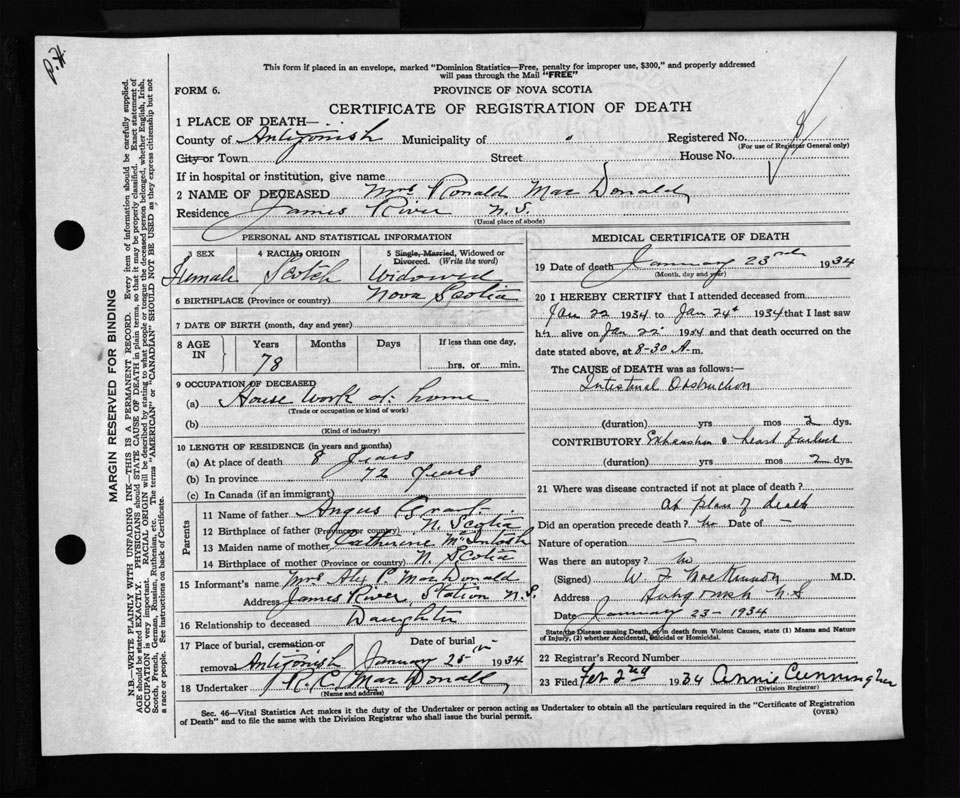 P.H.
This form if placed in an envelope, marked "Dominion Statistics—Free, penalty for improper use, $300," and properly addressed
will pass through the Mail "FREE"
FORM 6.
PROVINCE OF NOVA SCOTIA
CERTIFICATE OF REGISTRATION OF DEATH
1 PLACE OF DEATH—
County of Antigonish Municipality of " Registered No. 8
(For use of Registrar General only)
City or Town Street House No.
If in hospital or institution, give name
2 NAME OF DECEASED Mrs Ronald MacDonald
Residence James River N.S.
(Usual place of abode)
PERSONAL AND STATISTICAL INFORMATION
3 SEX 4 RACIAL ORIGIN 5 Single, Married, Widowed or
Divorced. (Write the word)
Female Scotch Widowed
6 BIRTHPLACE (Province or country) Nova Scotia
7 DATE OF BIRTH (month, day and year)
8 AGE IN Years Months Days If less than one day,
78 hrs. or min.
9 OCCUPATION OF DECEASED
(a) House work at home
(Trade or occupation or kind of work)
(b)
(Kind of industry)
10 LENGTH OF RESIDENCE (in years and months)
(a) At place of death 8 years
(b) In province 72 years
(c) In Canada (if an immigrant)
Parents
11 Name of father Angus Grant
12 Birthplace of father (Province or country) N. Scotia
13 Maiden name of mother Catherine McIntosh
14 Birthplace of mother (Province or country) N. Scotia
15 Informant's name Mrs Alex P MacDonald
Address James River Station N.S.
16 Relationship to deceased Daughter
17 Place of burial, cremation or Date of burial
removal Antigonish January 25th 1934
18 Undertaker R. C. MacDonald
(Name and address)
MEDICAL CERTIFICATE OF DEATH
19 Date of death January 23rd 1934
(Month, day and year)
20 I HEREBY CERTIFY that I attended deceased from
Jan 22 1934 to Jan 24th 1934 that I last saw
h alive on Jan 22 1934 and that death occurred on the
date stated above, at 8-30 A.m.
The CAUSE of DEATH was as follows:—
Intestinal Obstruction
(duration) yrs mos 2 dys.
CONTRIBUTORY Exhaustion & heart failure
(duration) yrs mos 2 dys.
21 Where was disease contracted if not at place of death?
At place of death
Did an operation precede death? No Date of —
Nature of operation —
Was there an autopsy? No
(Signed) W. F. MacKinnon M.D.
Address Antigonish N.S
Date January 23 - 1934
State the Disease causing Death, or in death from Violent Causes, state (1) Means and Nature
of Injury, (2) whether Accidental, Suicidal or Homicidal.
22 Registrar's Record Number
23 Filed Feb 2nd 1934 Annie Cunningham
(Division Registrar)
Sec. 46—Vital Statistics Act makes it the duty of the Undertaker or person acting as Undertaker to obtain all the particulars required in the "Certificate of Registration
of Death" and to file the same with the Division Registrar who shall issue the burial permit. (OVER)
MARGIN RESERVED FOR BINDING
N.B.—WRITE PLAINLY WITH UNFADING INK—THIS IS A PERMANENT RECORD. Every item of information should be carefully supplied.
AGE should be stated EXACTLY. PHYSICIANS should STATE CAUSE OF DEATH in plain terms, so that it may be properly classified. Exact statement of
OCCUPATION is very important. RACIAL ORIGIN will be described by stating to what people or tongue the deceased person belonged, whether English, Irish,
Scotch, French, German, Russian, Ruthenian, etc. The terms "AMERICAN" or "CANADIAN" SHOULD NOT BE USED as they express citizenship but not
a race or people. See instructions on back of Certificate.